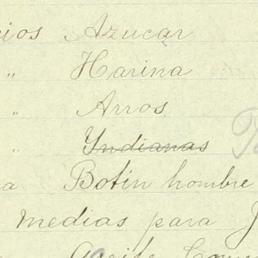 ios Azucar
" Harina
" Arros
" Yndianas
a Botin hombre
medias para J
Aceite Com